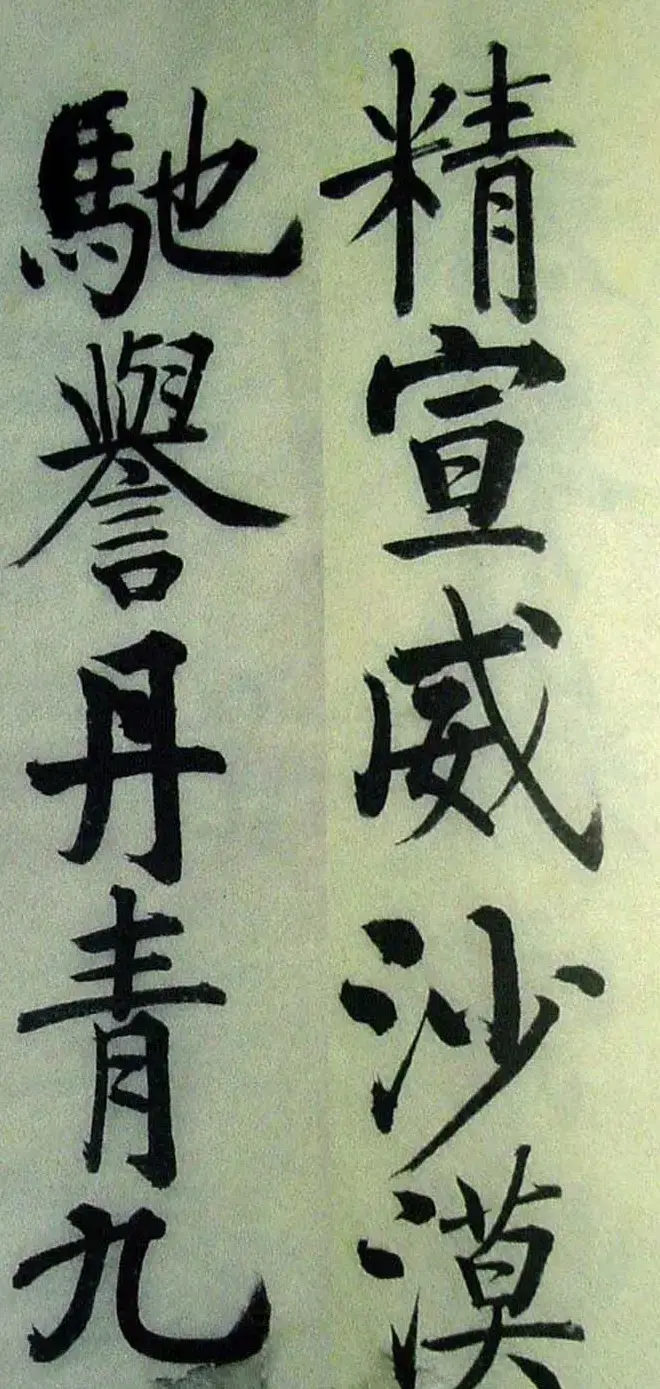 精宣威沙漠
馳譽丹青九